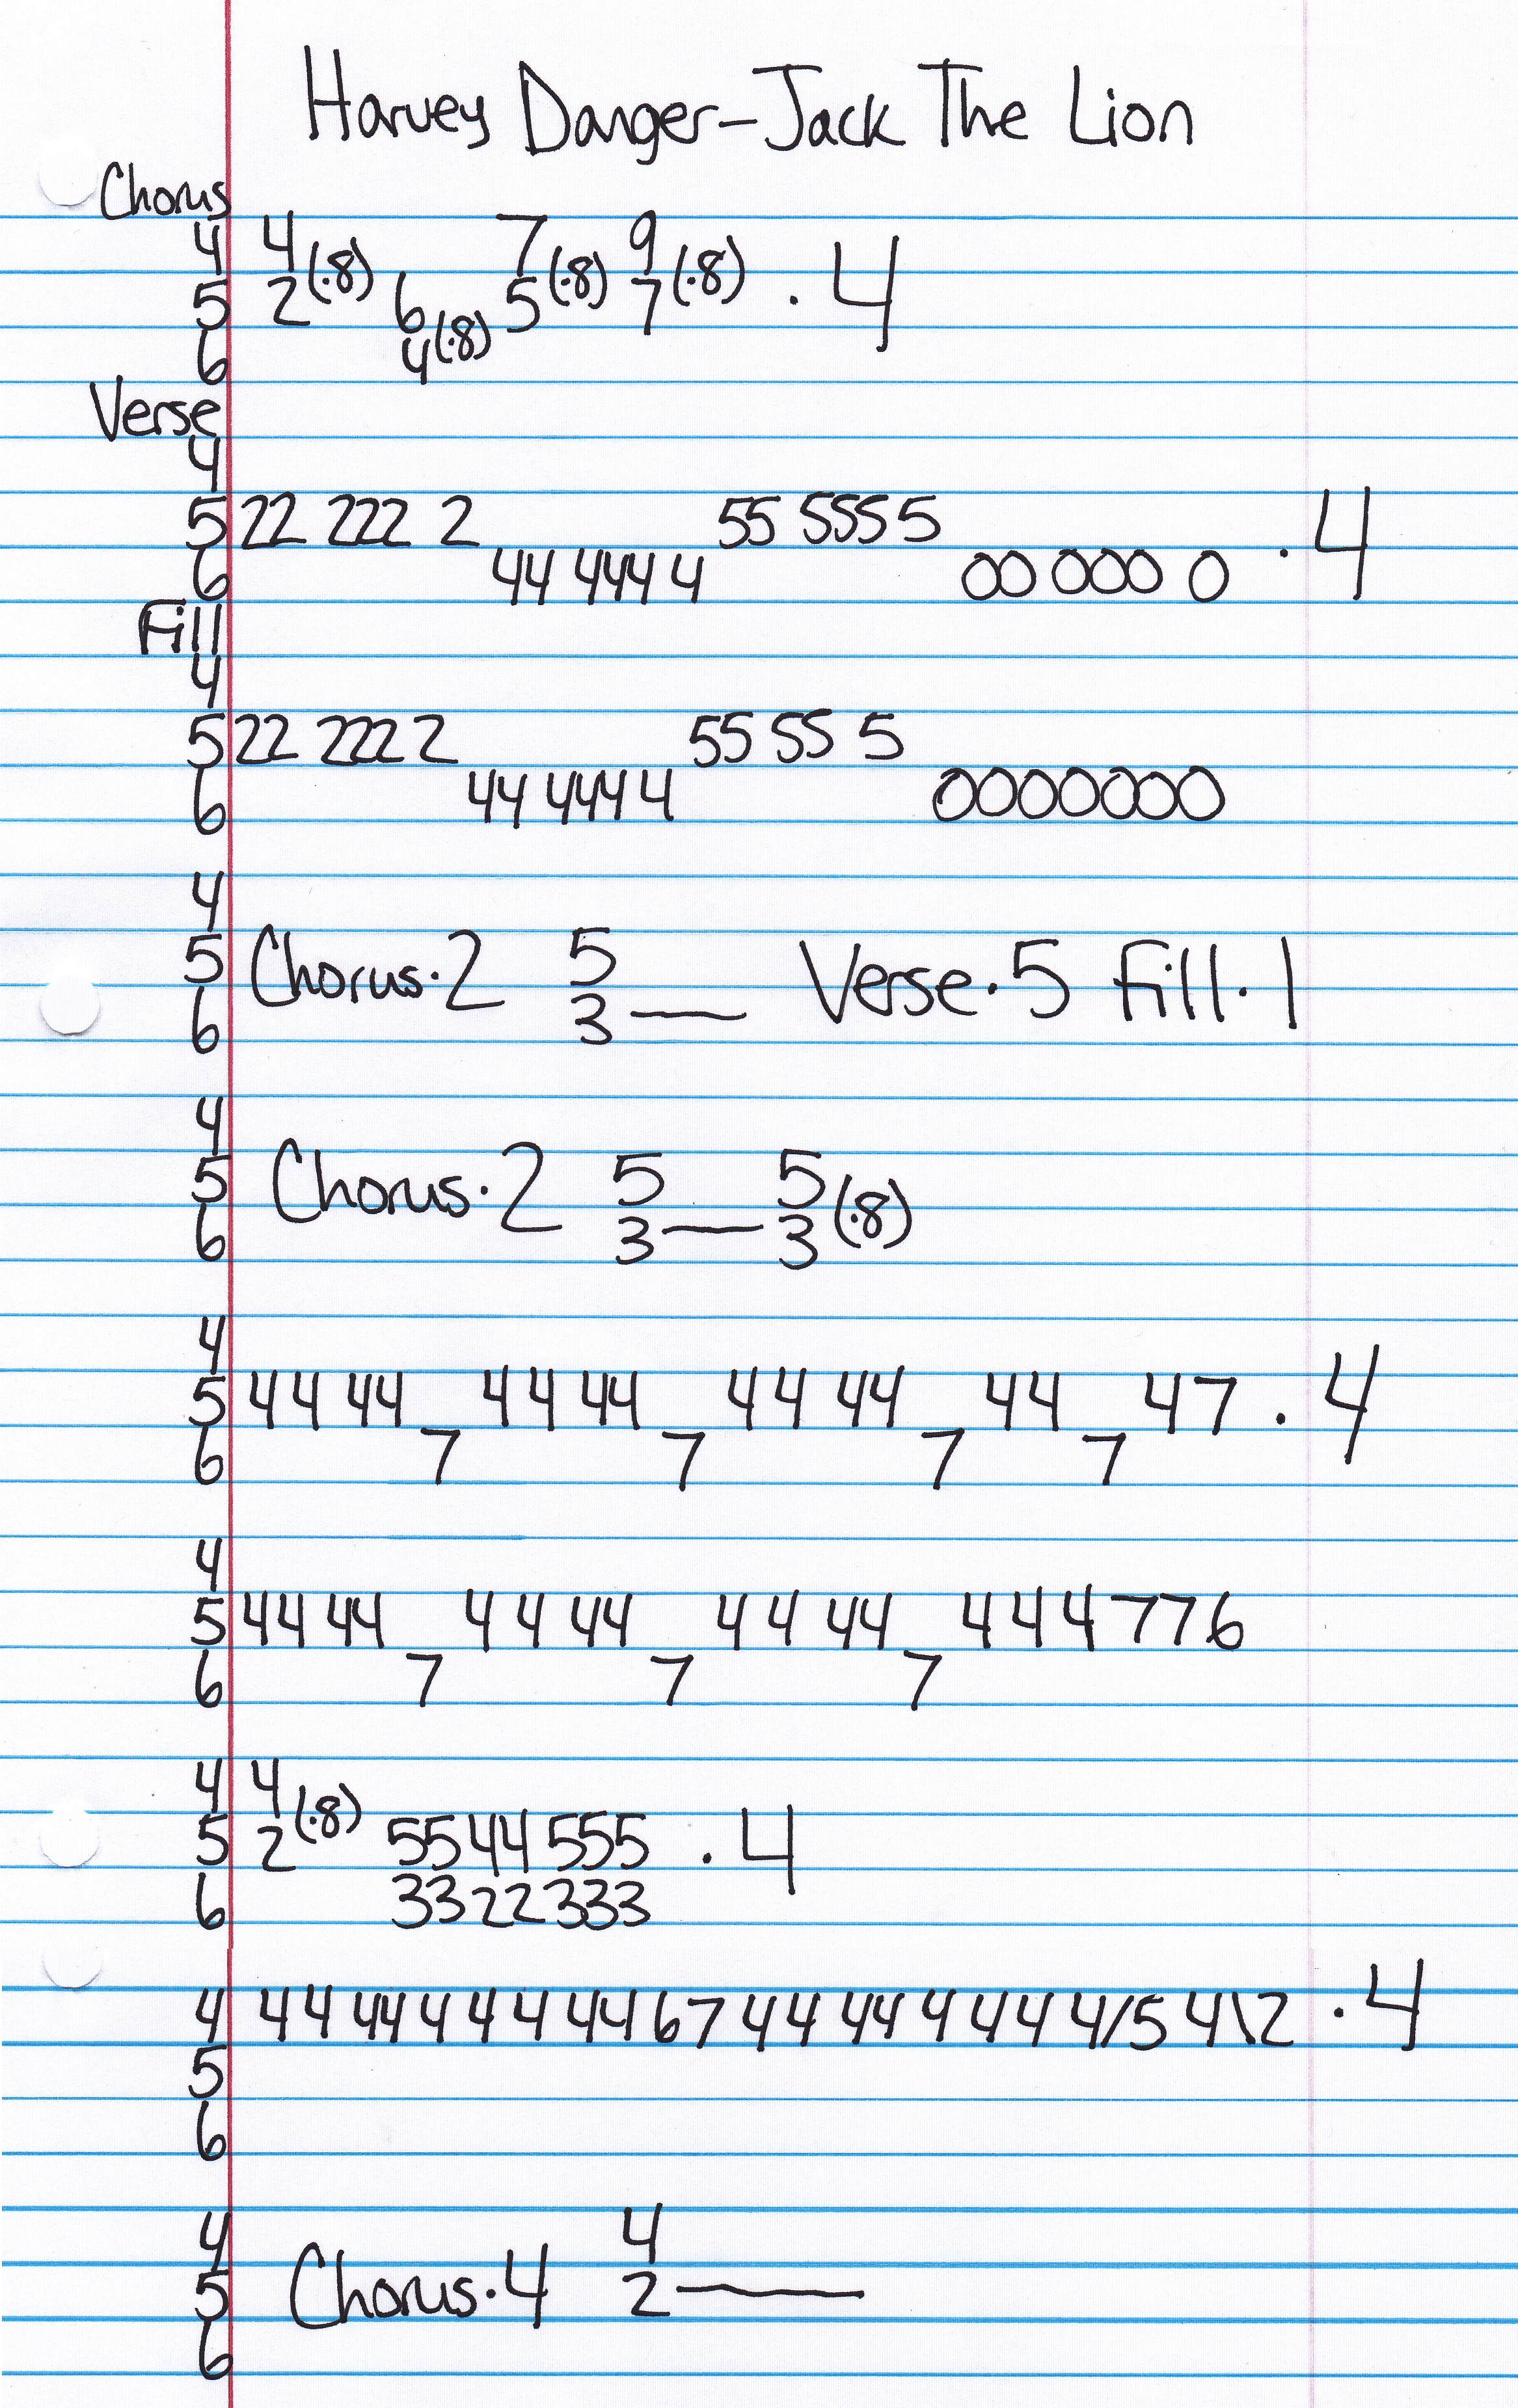 Harvey Danger-Jack The Lion
Chorus
4 4 7 9
5 2(·8) 6 5(·8) 7(·8) · 4
6 4(·8)
Verse
4
5 22 222 2 55 555 5 · 4
6 44 444 4 00 000 0
Fill
4
5 22 222 2 55 55 5
6 44 444 4 0000000
4
5 Chorus·2 5 Verse·5 Fill·1
6 3—
4
5 Chorus·2 5 5
6 3— 3(·8)
4
5 44 44 44 44 44 44 44 47 · 4
6 7 7 7 7
4
5 44 44 44 44 44 44 444776
6 7 7 7
4 4
5 2(·8) 5544555 · 4
6 3322333
4 44 44 4 4 4 44 67 44 44 4 44 4/5 4\2 · 4
5
6
4 4
5 Chorus·4 2—
6